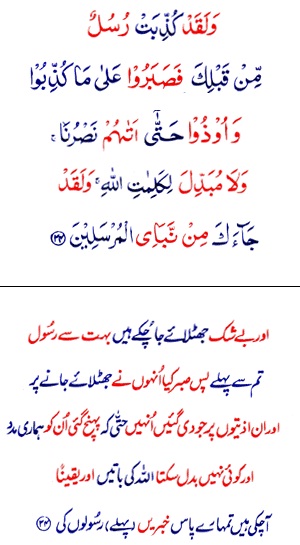 وَلَقَدْ كُذِّبَتْ رُسُلٌ
مِّنْ قَبْلِكَ فَصَبَرُوْا عَلٰى مَا كُذِّبُوْا
وَاُوْذُوْا حَتّٰٓى اَتٰىهُمْ نَصْرُنَا ۚ
وَلَا مُبَدِّلَ لِكَلِمٰتِ اللّٰهِ ۚ وَلَقَدْ
جَآءَكَ مِنْ نَّبَاِى الْمُرْسَلِيْنَ ﴿۳۴﴾
اور بے شک جھٹلائے جاچکے ہیں بہت سے رسُول
تم سے پہلے پس صبر کیا اُنہوں نے جھٹلائے جانے پر
اور ان اذیتوں پر جو دی گئیں اُنہیں حتّٰی کہ پہنچ گئی اُن کو ہماری مدد
اور کوئی نہیں بدل سکتا اللہ کی باتیں اور یقینًا
آچکی ہیں تمہارے پاس خبریں (پہلے) رسُولوں کی ﴿۳۴﴾